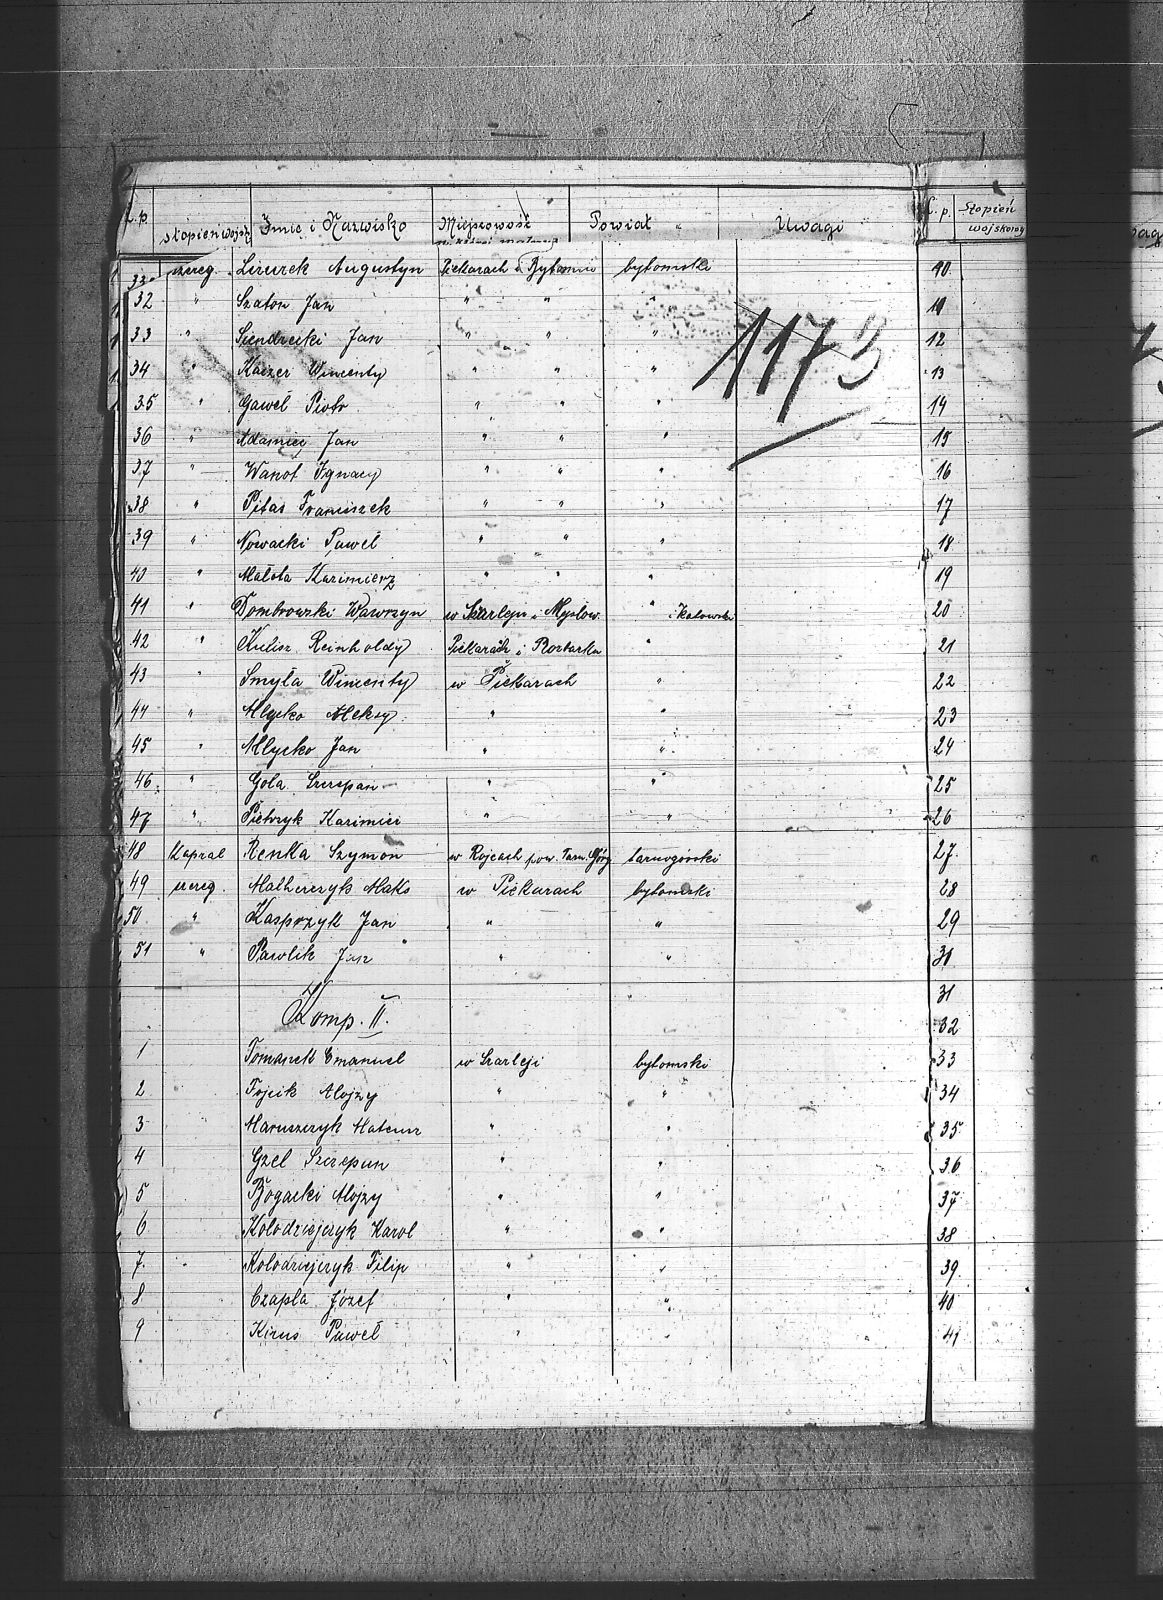 L.p. stopień wojsk. Imię i Nazwisko Miejscowość Powiat Uwagi
szereg. Lizurek Augustyn Piekarach i Bytomiu bytomski
32 " Szaton Jan " " "
33 " Siendrecki Jan " " "
34 " Kaczer Wincenty " " "
35 " Gaweł Piotr " " "
36 " Adamiec Jan " " "
37 " Wanot Ignacy " " "
38 " Pitas Franciszek " " "
39 " Nowacki Paweł " " "
40 " Malota Kazimierz " " "
41 " Dombrowski Wawrzyn w Szarleju i Mysłow. " i Katowski
42 " Kulisz Reinholdy Piekarach i Rozbarku "
43 " Smyła Wincenty w Piekarach "
44 " Młycko Aleksy " "
45 " Młycko Jan " "
46 " Gola Szczepan " "
47 " Pietrzyk Kazimierz " "
48 Kapral Renka Szymon w Rojcach pow. Tarn. Góry tarnogórski
49 szereg. Malherczyk Maks w Piekarach bytomski
50 " Kasprzyk Jan " "
51 " Pawlik Jan " "
Komp. II.
1 Tomanek Emanuel w Szarleji bytomski
2 Fojcik Alojzy " "
3 Maruszczyk Mateusz " "
4 Gzel Szczepan " "
5 Bogacki Alojzy " "
6 Kołodziejczyk Karol " "
7. Kołodziejczyk Filip " "
8 Czapla Józef " "
9 Kizus Paweł " "
1173
L. p. Stopień wojskowy
10.
11
12
13
14
15
16
17
18
19
20
21
22
23
24
25
26
27.
28
29
31
31
32
33
34
35
36
37
38
39.
40
41